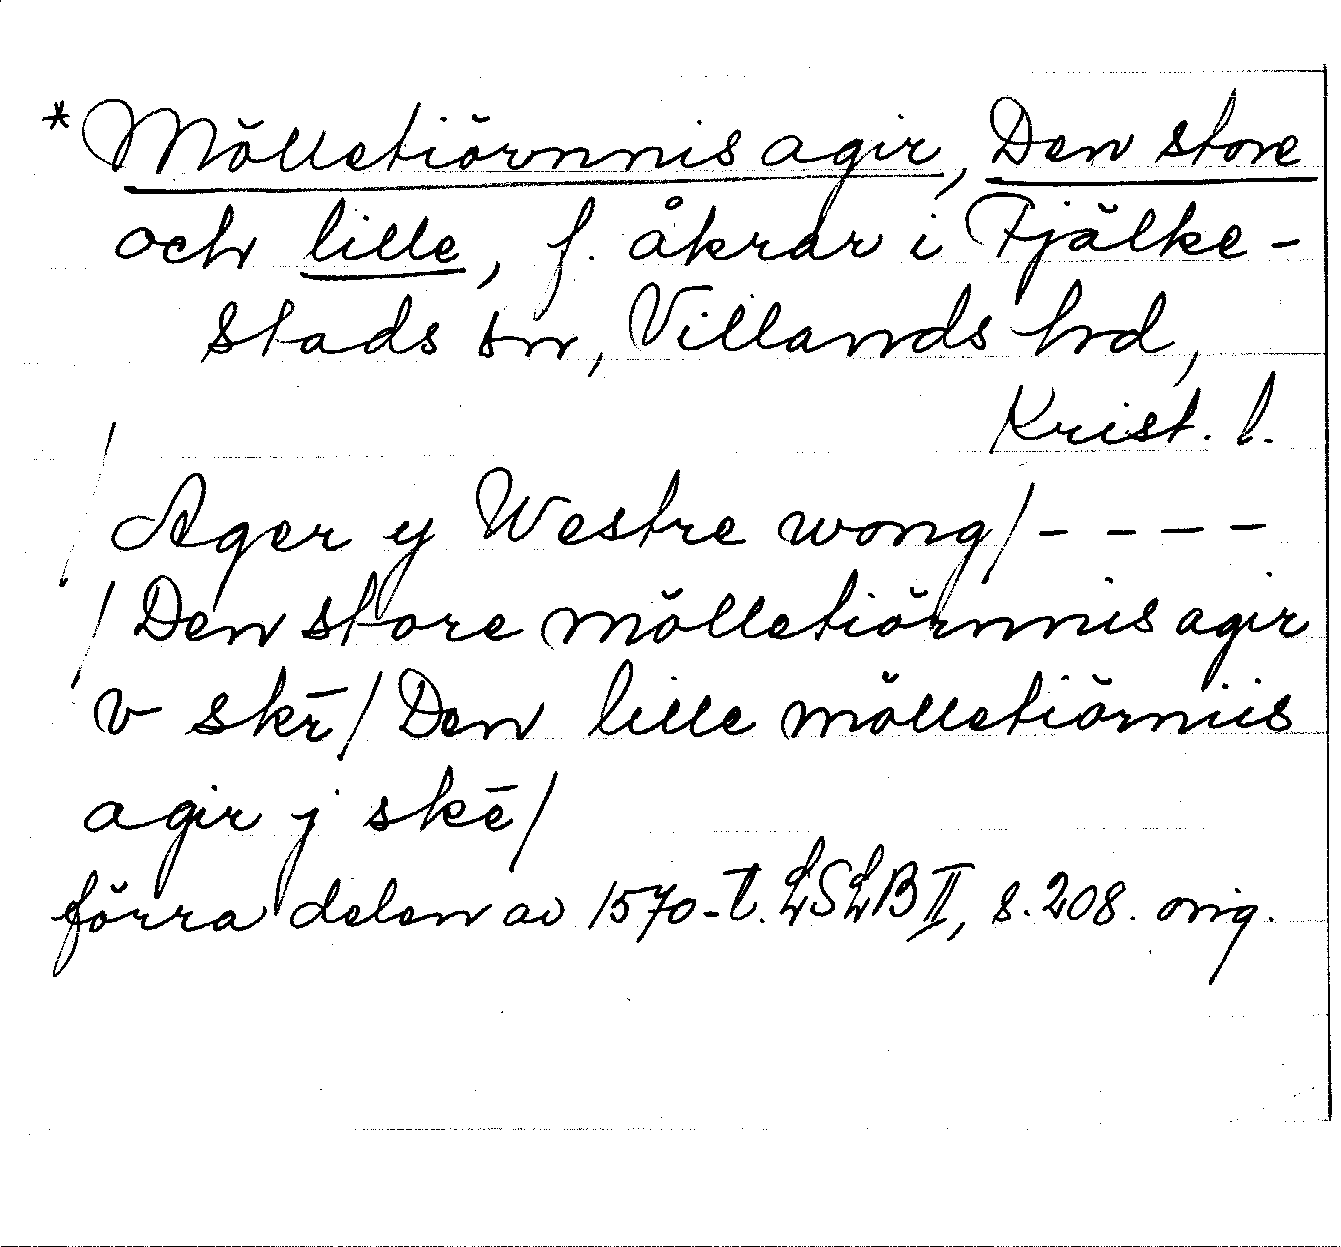 * Mölletiörnnis agir, Den store
och lille, f. åkrar i Fjälke-
stads sn, Villands hd,
Krist. l.
/ Ager y Westre wong / - - - -
/ Den store mölletiörnnis agir
v skē / Den lille mölletiörniis
agir j skē /
förra delen av 1570-t. LSLB II, s. 208. orig.